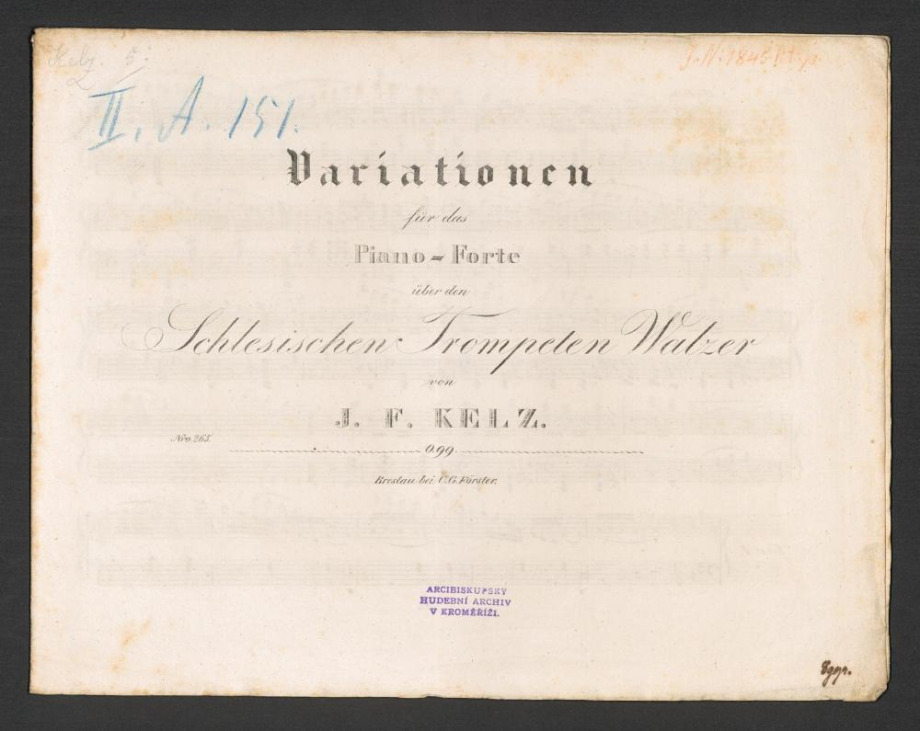 Kelz. 5.
II. A. 151.
Variationen
für das
Piano-Forte
über den
Schlesischen Trompeten Walzer
von
J. F. KELZ.
Nro. 265.
0.99
Breslau bei C.G. Förster.
ARCIBISKUPSKÝ
HUDEBNÍ ARCHIV
V KROMĚŘÍŽI.